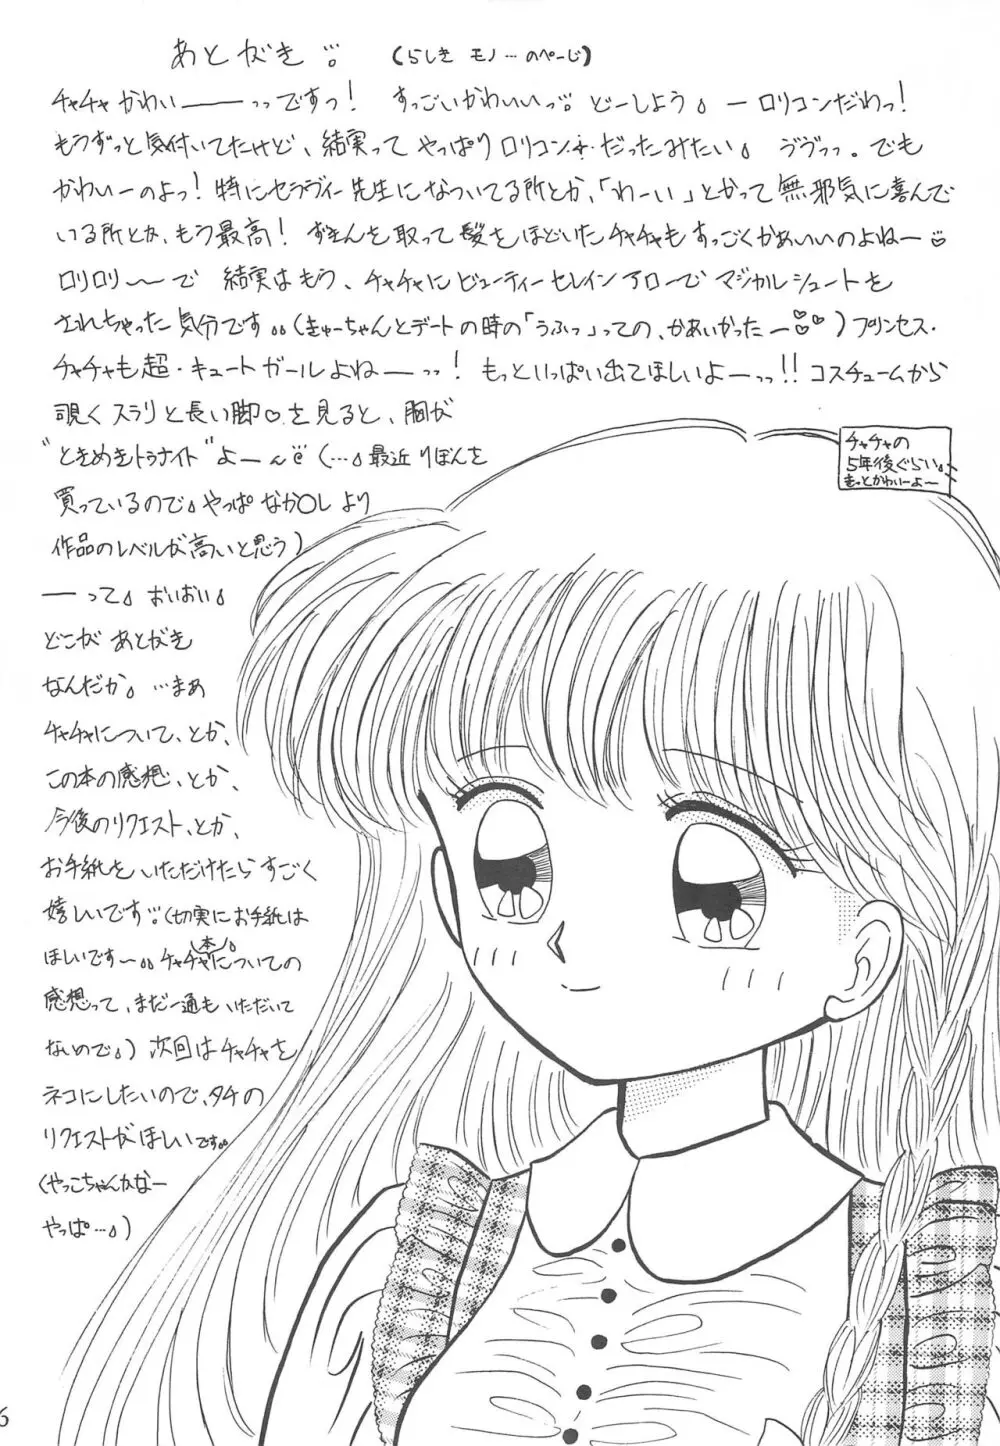 あとがき
(らしき モノ…のぺーじ)
チャチャかわいーーーっっですっ！ すっごいかわいいっ。どーしよう。ーロリコンだわっ！
もうずっと気付いてたけど、結実って やっぱりロリコン だったみたい。 ゔゔっっ。でも
かわいーのよっ！特にセラヴィー先生になついてる所とか、「わーい」とかって無邪気に喜んで
いる所とか、もう最高！ ずきんを取って髪をほどいたチャチャもすっごくかあいいのよねー♡
ロリロリ～～で 結実はもう、チャチャにビューティーセレインアローでマジカルシュートを
されちゃった気分です。。(きゅーちゃんとデートの時の「うふっ」っての、かあいかったー♡♡)プリンセス・
チャチャも超・キュートガールよねーーっっ！ もっといっぱい出てほしいよーっっ!! コスチュームから
覗くスラリと長い脚♡を見ると、胸が
"ときめきトゥナイト"よーん (…。最近りぼんを
買っているので。やっぱ なか○しより
作品のレベルが高いと思う)
ーーって。おいおい。
どこが あとがき
なんだか。…まぁ
チャチャについて、とか、
この本の感想、とか、
今後のリクエスト、とか、
お手紙をいただけたらすごく
嬉しいです(切実にお手紙は
ほしいです～。。チャチャ本についての
感想って、まだ一通もいただいて
ないので。)次回はチャチャを
ネコにしたいので、タチの
リクエストがほしいです。。
(やっこちゃんかなー
やっぱ…。)
チャチャの
5年後ぐらい。
もっとかわいーよ～
6